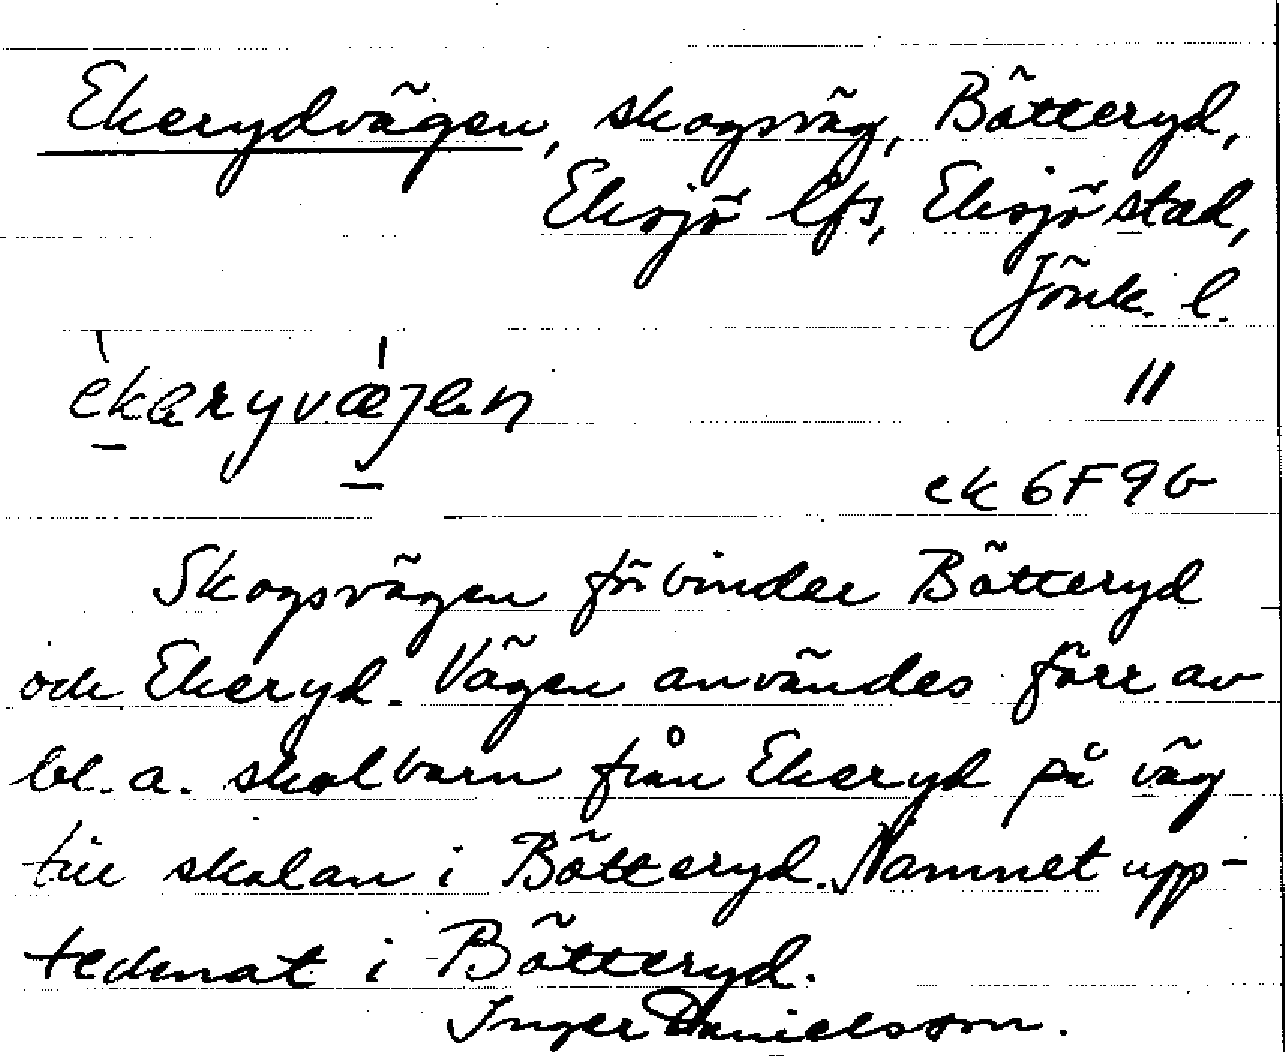 Ekerydvägen, skogsväg, Bötteryd,
Eksjö lfs, Eksjö stad,
Jönk. l.
èkeryvǽjen "
ek 6F9b
Skogsvägen förbinder Bötteryd
och Ekeryd. Vägen användes förr av
bl.a. skolbarn från Ekeryd på väg
till skolan i Bötteryd. Namnet upp-
tecknat i Bötteryd.
Inger Danielsson.